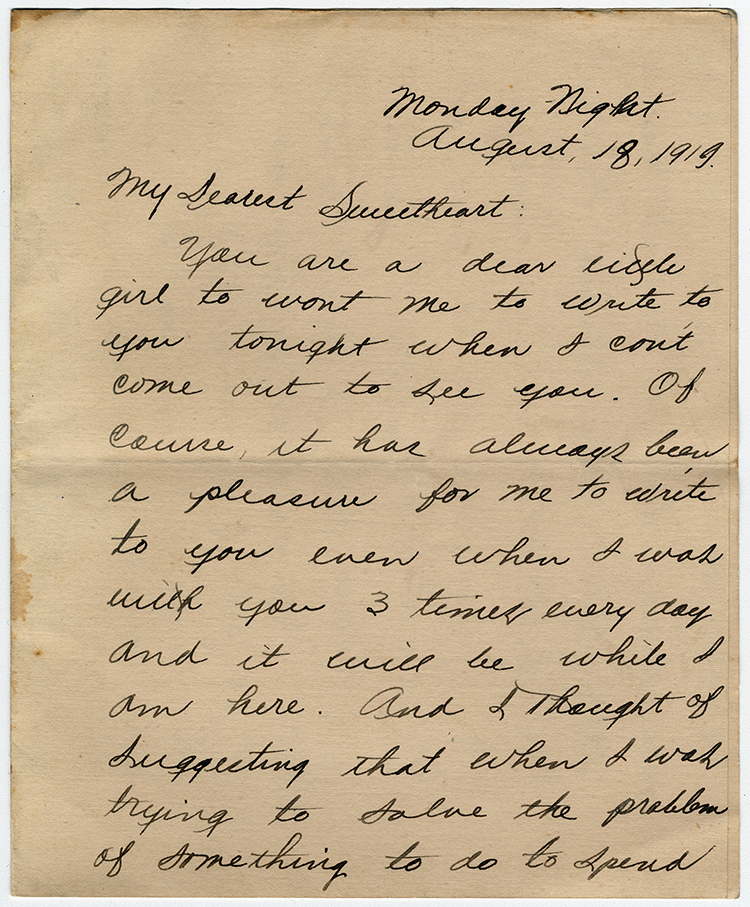 Monday Night.
August, 18, 1919.
My Dearest Sweetheart:
You are a dear little
girl to want me to write to
you tonight when I can't
come out to see you. Of
course, it has always been
a pleasure for me to write
to you even when I was
with you 3 times every day
and it will be while I
am here. And I thought of
suggesting that when I was
trying to solve the problem
of something to do to spend